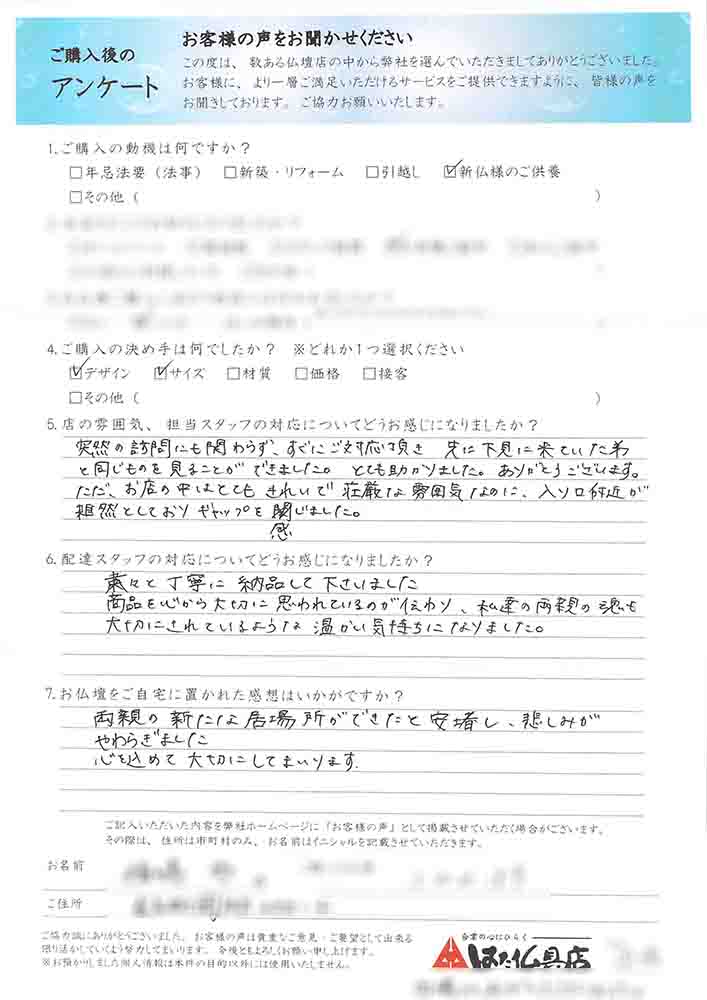 ご購入後の
アンケート
お客様の声をお聞かせください
この度は、数ある仏壇店の中から弊社を選んでいただきましてありがとうございました。
お客様に、より一層ご満足いただけるサービスをご提供できますように、皆様の声を
お聞きしております。ご協力お願いいたします。
1.ご購入の動機は何ですか？
□年忌法要（法事） □新築・リフォーム □引越し ☑新仏様のご供養
□その他（ ）
4.ご購入の決め手は何でしたか？ ※どれか1つ選択ください
☑デザイン ☑サイズ □材質 □価格 □接客
□その他（ ）
5.店の雰囲気、担当スタッフの対応についてどうお感じになりましたか？
突然の訪問にも関わらず、すぐにご対応頂き 先に下見に来ていた弟
と同じものを見ることができました。とても助かりました。ありがとうございます。
ただ、お店の中はとても きれいで 荘厳な雰囲気なのに、入り口付近が
雑然としており ギャップを 関じました。
感
6.配達スタッフの対応についてどうお感じになりましたか？
粛々と丁寧に 納品して下さいました
商品を心から大切に思われているのが伝わり、私達の両親の魂も
大切にされているような 温かい気持ちになりました。
7.お仏壇をご自宅に置かれた感想はいかがですか？
両親の新たな居場所ができたと安堵し、悲しみが
やわらぎました
心を込めて 大切にしてまいります
ご記入いただいた内容を弊社ホームページに「お客様の声」として掲載させていただく場合がございます。
その際は、住所は市町村のみ、お名前はイニシャルを記載させていただきます。
お名前
ご住所
ご協力誠にありがとうございました。お客様の声は貴重なご意見・ご要望として出来る
限り活かしていくよう努力してまいります。今後ともよろしくお願い申し上げます。
※お預かりしました個人情報は本件の目的以外には使用いたしません。
合掌の心にひらく
はた仏具店